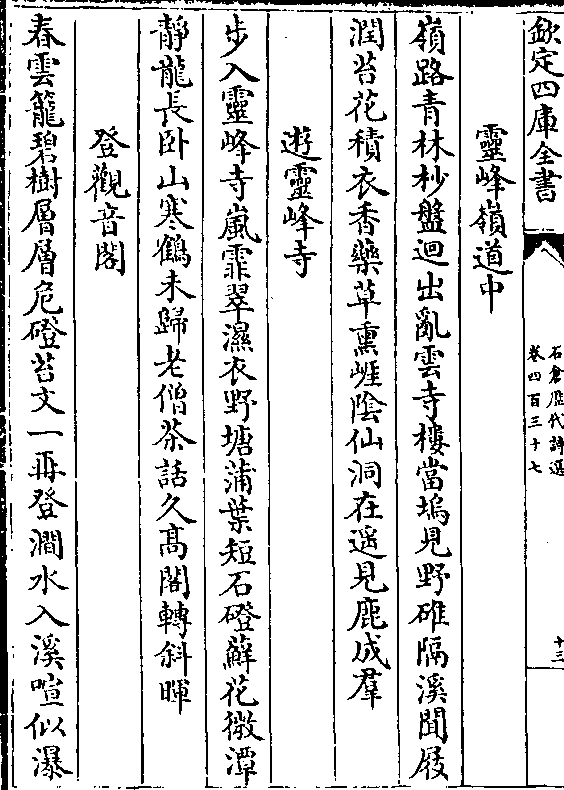 欽定四庫全書
石倉歷代詩選
卷四百三十七
十三
靈峰嶺道中
嶺路青林杪盤迴出亂雲寺樓當塢見野碓隔溪聞屐
潤苔花積衣香藥草熏崕陰仙洞在遥見鹿成羣
遊靈峰寺
步入靈峰寺嵐霏翠濕衣野塘蒲葉短石磴蘚花微潭
靜龍長卧山寒鶴未歸老僧茶話久髙閣轉斜暉
登觀音閣
春雲籠碧樹層層危磴苔文一再登澗水入溪喧似瀑